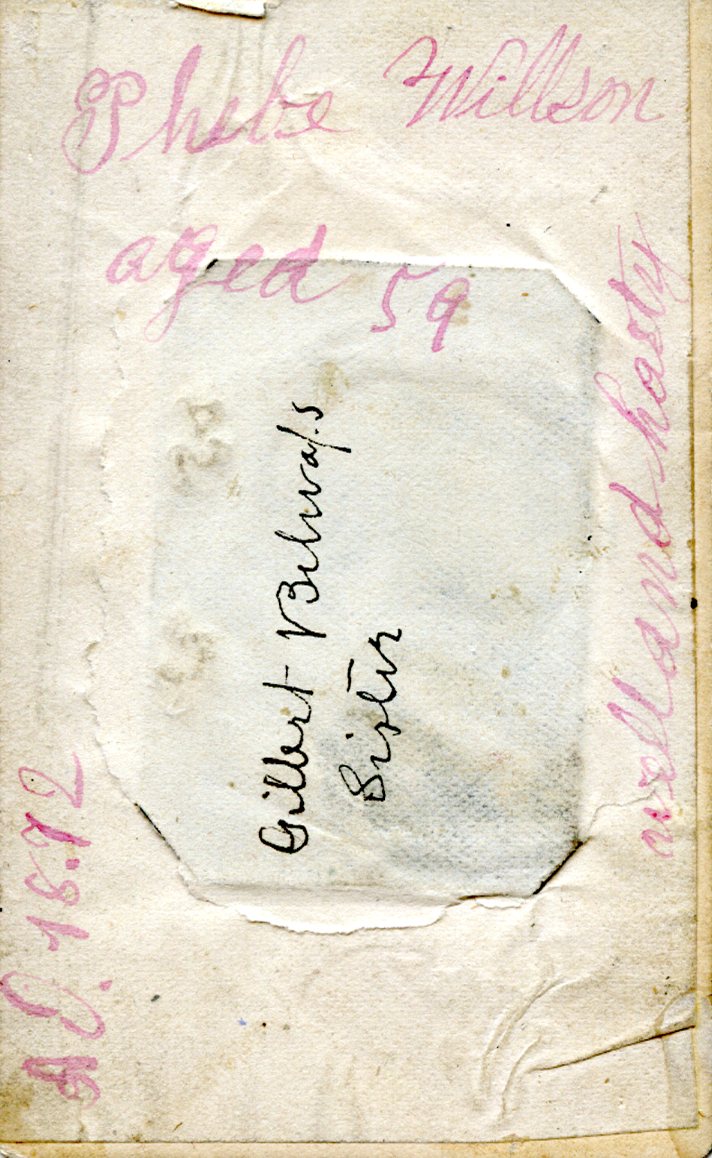 Phebe Willson
aged 59
well and hearty
A.D. 1872
Gilbert
Sister